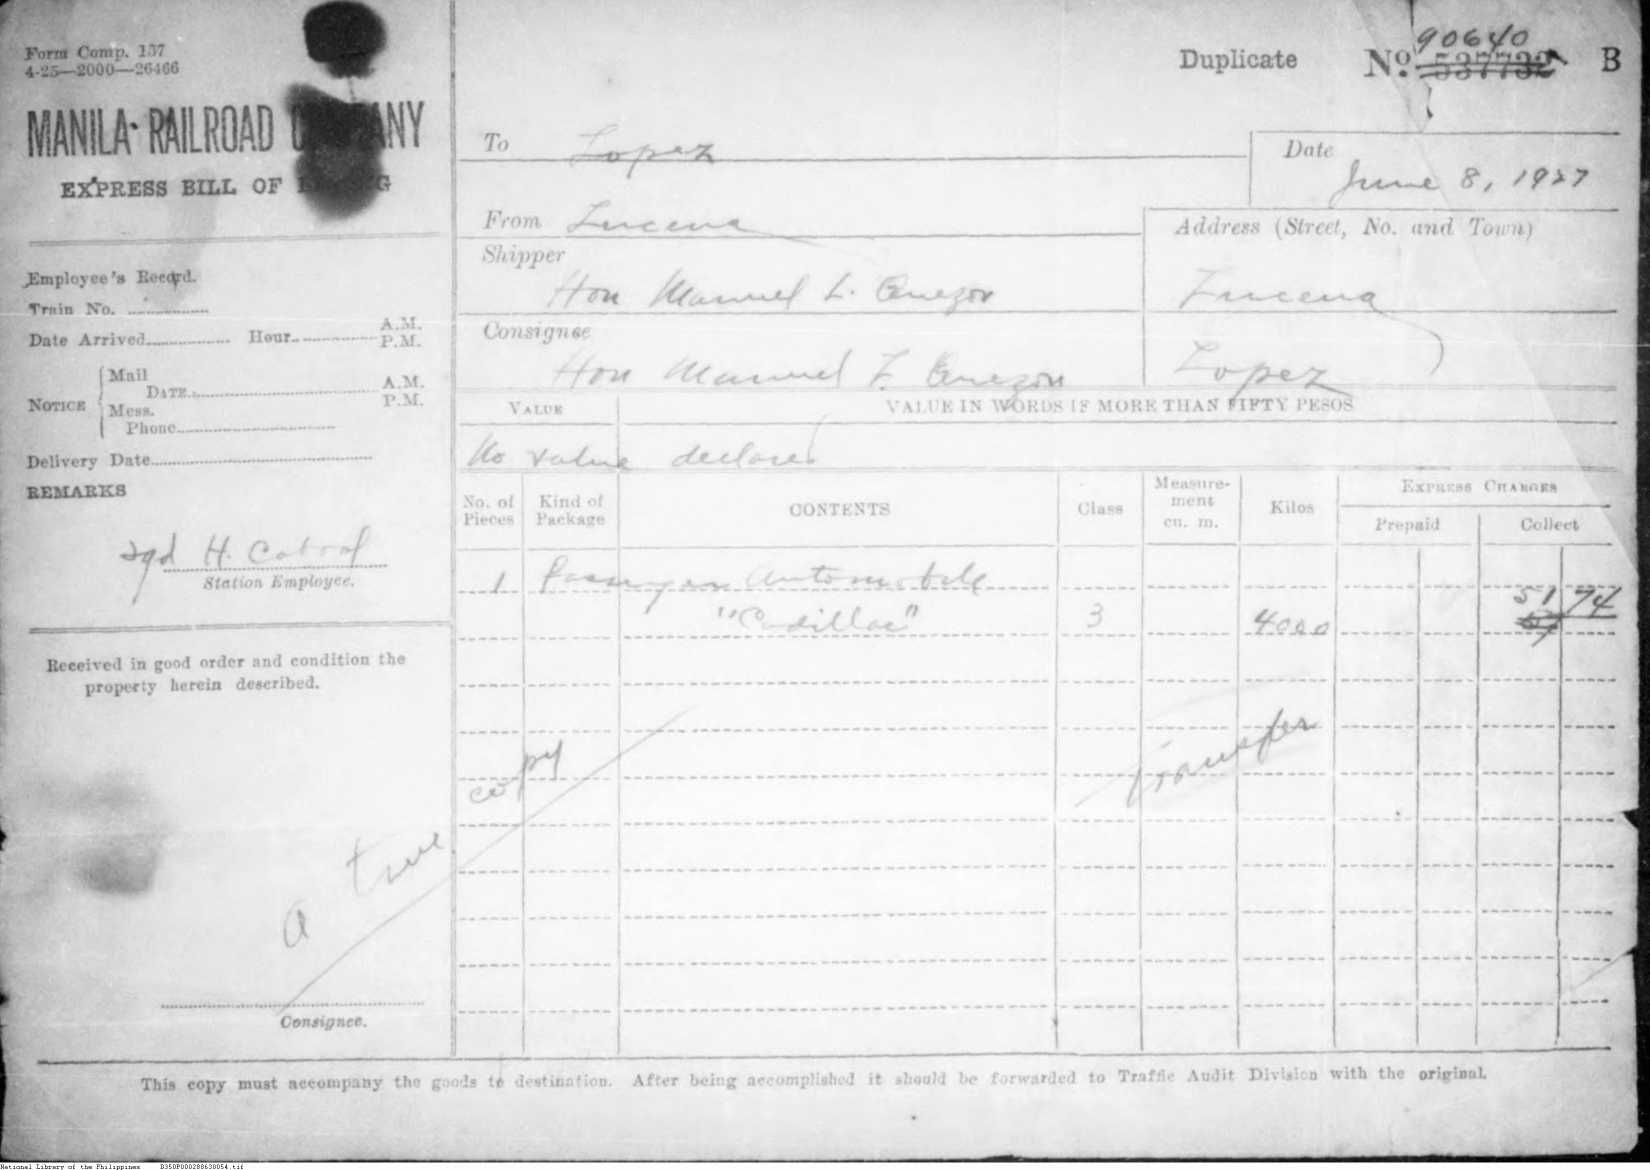 Form Comp. 137
4-25—2000—26466
MANILA RAILROAD COMPANY
EXPRESS BILL OF LADING
Duplicate
No. 537732 B
90640
To Lopez
Date
June 8, 1927
From Lucena
Address (Street, No. and Town)
Shipper
Hon Manuel L. Quezon
Lucena
Consignee
Hon Manuel L. Quezon
Lopez
VALUE
VALUE IN WORDS IF MORE THAN FIFTY PESOS
No value declared
Employee's Record.
Train No.
Date Arrived Hour A.M.
P.M.
NOTICE
Mail
DATE A.M.
P.M.
Mess.
Phone
Delivery Date
REMARKS
sgd H. Cabral
Station Employee.
Received in good order and condition the
property herein described.
a true copy
Consignee.
No. of Pieces
Kind of Package
CONTENTS
Class
Measurement cu. m.
Kilos
EXPRESS CHARGES
Prepaid
Collect
1 Passenger Automobile
"Cadillac" 3 4000 51 74
Transfer
This copy must accompany the goods to destination. After being accomplished it should be forwarded to Traffic Audit Division with the original.
National Library of the Philippines B350P000288638054.tif